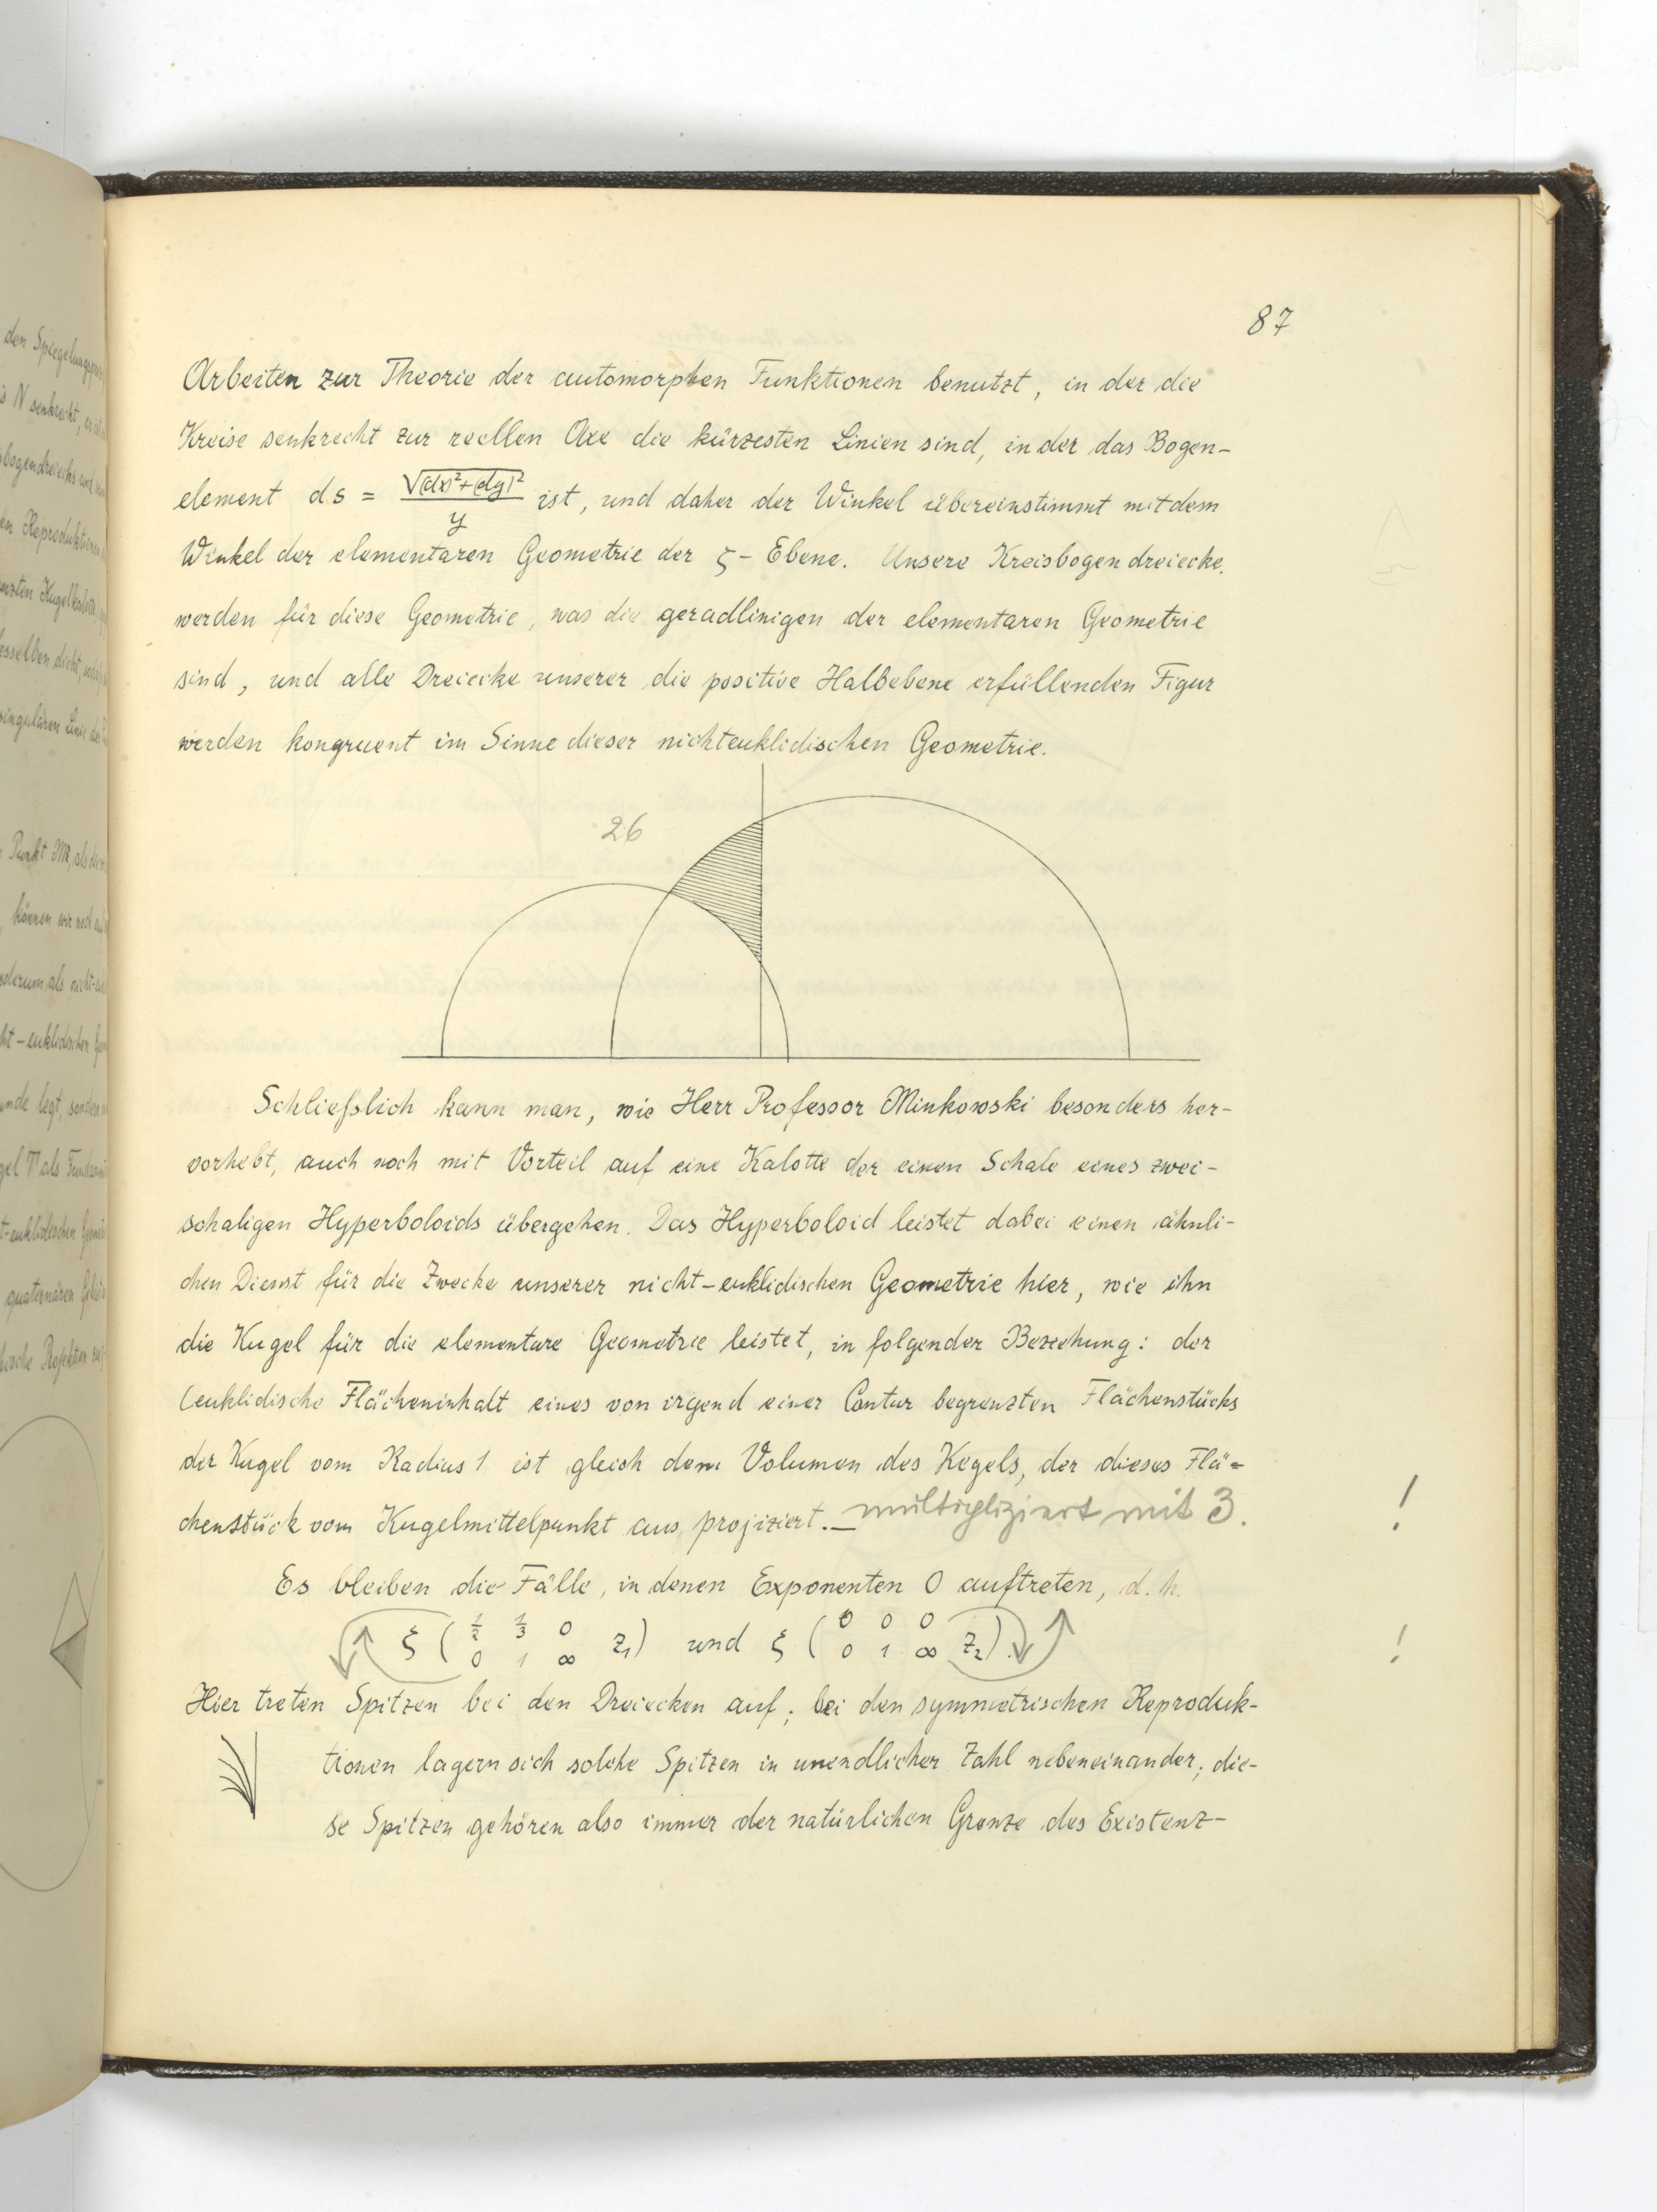 87
Arbeiten zur Theorie der automorphen Funktionen benutzt, in der die
Kreise senkrecht zur reellen Axe die kürzesten Linien sind, in der das Bogen-
element ds = √(dx)²+(dy)² / y ist, und daher der Winkel übereinstimmt mit dem
Winkel der elementaren Geometrie der ζ- Ebene. Unsere Kreisbogendreiecke
werden für diese Geometrie, was die geradlinigen der elementaren Geometrie
sind, und alle Dreiecke unserer die positive Halbebene erfüllenden Figur
werden kongruent im Sinne dieser nichteuklidischen Geometrie.
26
Schließslich kann man, wie Herr Professor Minkowski besonders her-
vorhebt, auch noch mit Vorteil auf eine Kalotte der einen Schale eines zwei-
schaligen Hyperboloids übergehen. Das Hyperboloid leistet dabei einen ähnli-
chen Dienst für die Zwecke unserer nicht-euklidischen Geometrie hier, wie ihn
die Kugel für die elementare Geometrie leistet, in folgender Beziehung: der
(euklidische Flächeninhalt eines von irgend einer Contur begrenzten Flächenstücks
der Kugel vom Radius 1 ist gleich dem Volumen des Kegels, der dieses Flä-
chenstück vom Kugelmittelpunkt aus projiziert. — multipliziert mit 3. !
Es bleiben die Fälle, in denen Exponenten 0 auftreten, d. h.
ξ ( 1/2 1/3 0 / 0 1 ∞ z₁) und ξ ( 0 0 0 / 0 1 ∞ z₂). !
Hier treten Spitzen bei den Dreiecken auf; bei den symmetrischen Reproduk-
tionen lagern sich solche Spitzen in unendlicher Zahl nebeneinander; die-
se Spitzen gehören also immer der natürlichen Grenze des Existenz-